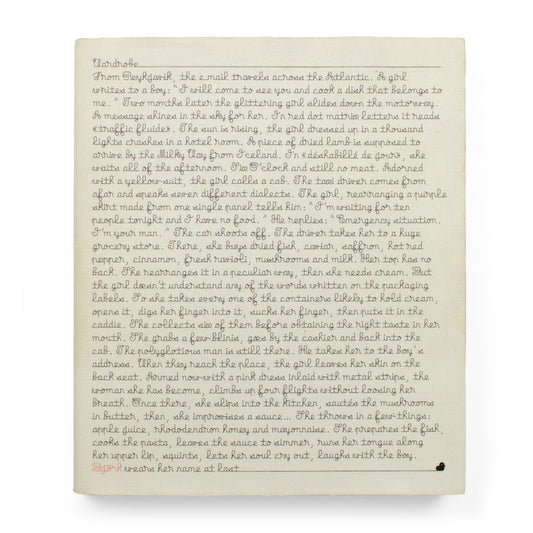 Wardrobe
From Reykjavik, the e.mail travels across the Atlantic. A girl
writes to a boy: “I will come to see you and cook a dish that belongs to
me. ” Two months later the glittering girl slides down the motorway.
A message shines in the sky for her. In red dot matrix letters it reads
«traffic fluide». The sun is rising, the girl dressed up in a thousand
lights crashes in a hotel room. A piece of dried lamb is supposed to
arrive by the Milky Way from Iceland. In «déshabillé de jour», she
waits all of the afternoon. Six O'clock and still no meat. Adorned
with a yellow suit, the girl calls a cab. The taxi driver comes from
afar and speaks seven different dialects. The girl, rearranging a purple
skirt made from one single panel tells him: “I'm waiting for ten
people tonight and I have no food. ” He replies: “Emergency situation.
I'm your man. ” The car shoots off. The driver takes her to a huge
grocery store. There, she buys dried fish, caviar, saffron, hot red
pepper, cinnamon, fresh ravioli, mushrooms and milk. Her top has no
back. She rearranges it in a peculiar way, then she needs cream. But
the girl doesn't understand any of the words written on the packaging
labels. So she takes every one of the containers likely to hold cream,
opens it, digs her finger into it, sucks her finger, then puts it in the
caddie. She collects six of them before obtaining the right taste in her
mouth. She grabs a few blinis, goes by the cashier and back into the
cab. The polyglotious man is still there. He takes her to the boy's
address. When they reach the place, the girl leaves her skin on the
back seat. Armed now with a pink dress inlaid with metal strips, the
woman she has become, climbs up four flights without loosing her
breath. Once there, she slips into the kitchen, sautés the mushrooms
in butter, then, she improvises a sauce... She throws in a few things:
apple juice, rhododendron honey and mayonnaise. She prepares the fish,
cooks the pasta, leaves the sauce to simmer, runs her tongue along
her upper lip, squints, lets her soul cry out, laughs with the boy.
Björk wears her name at last